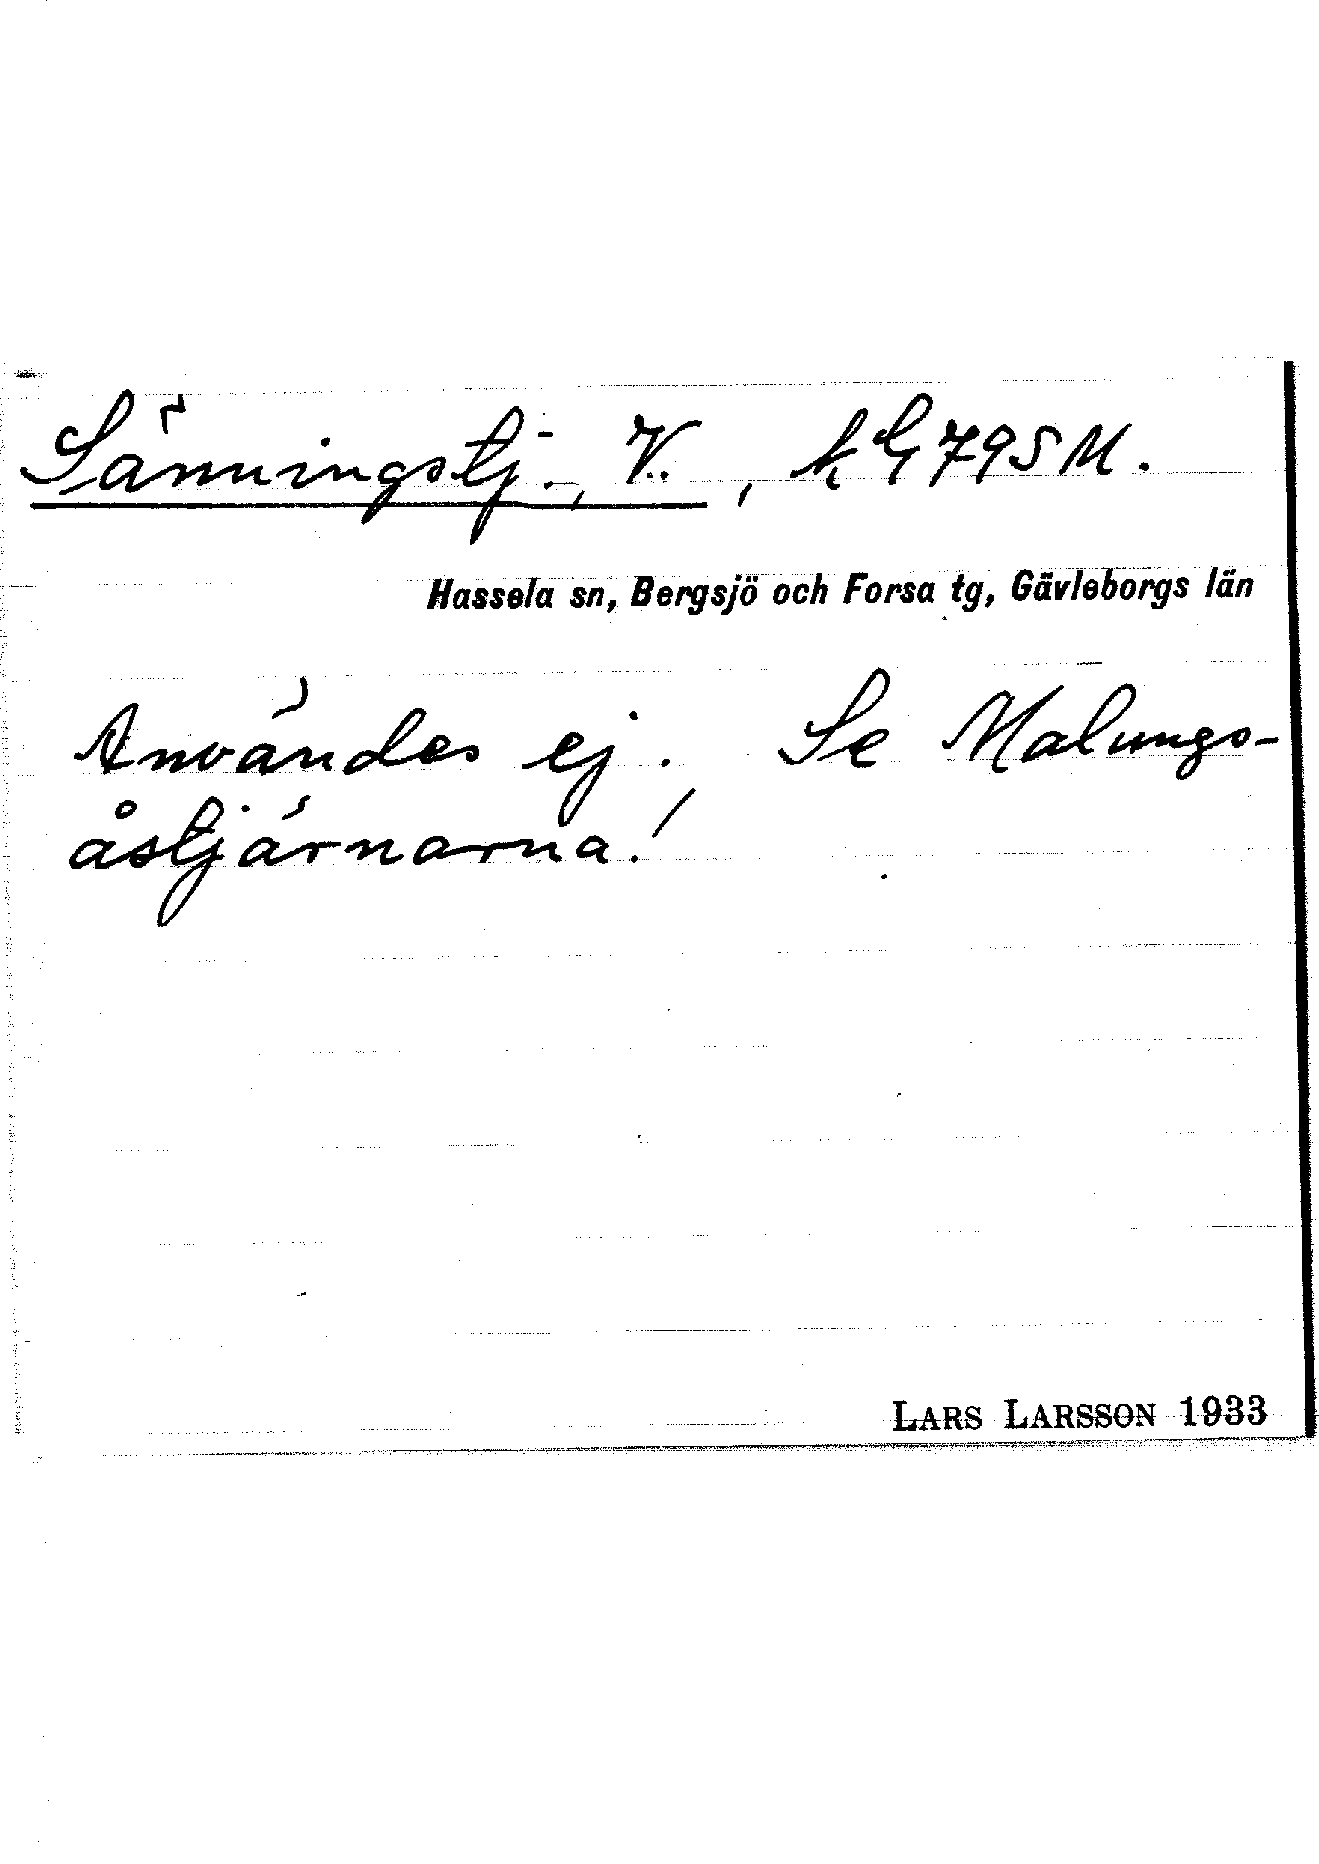 Sänningstj., V., kG 795 M.
Hassela sn, Bergsjö och Forsa tg, Gävleborgs län
Användes ej. Se Malungs-
åstjärnarna!
LARS LARSSON 1933